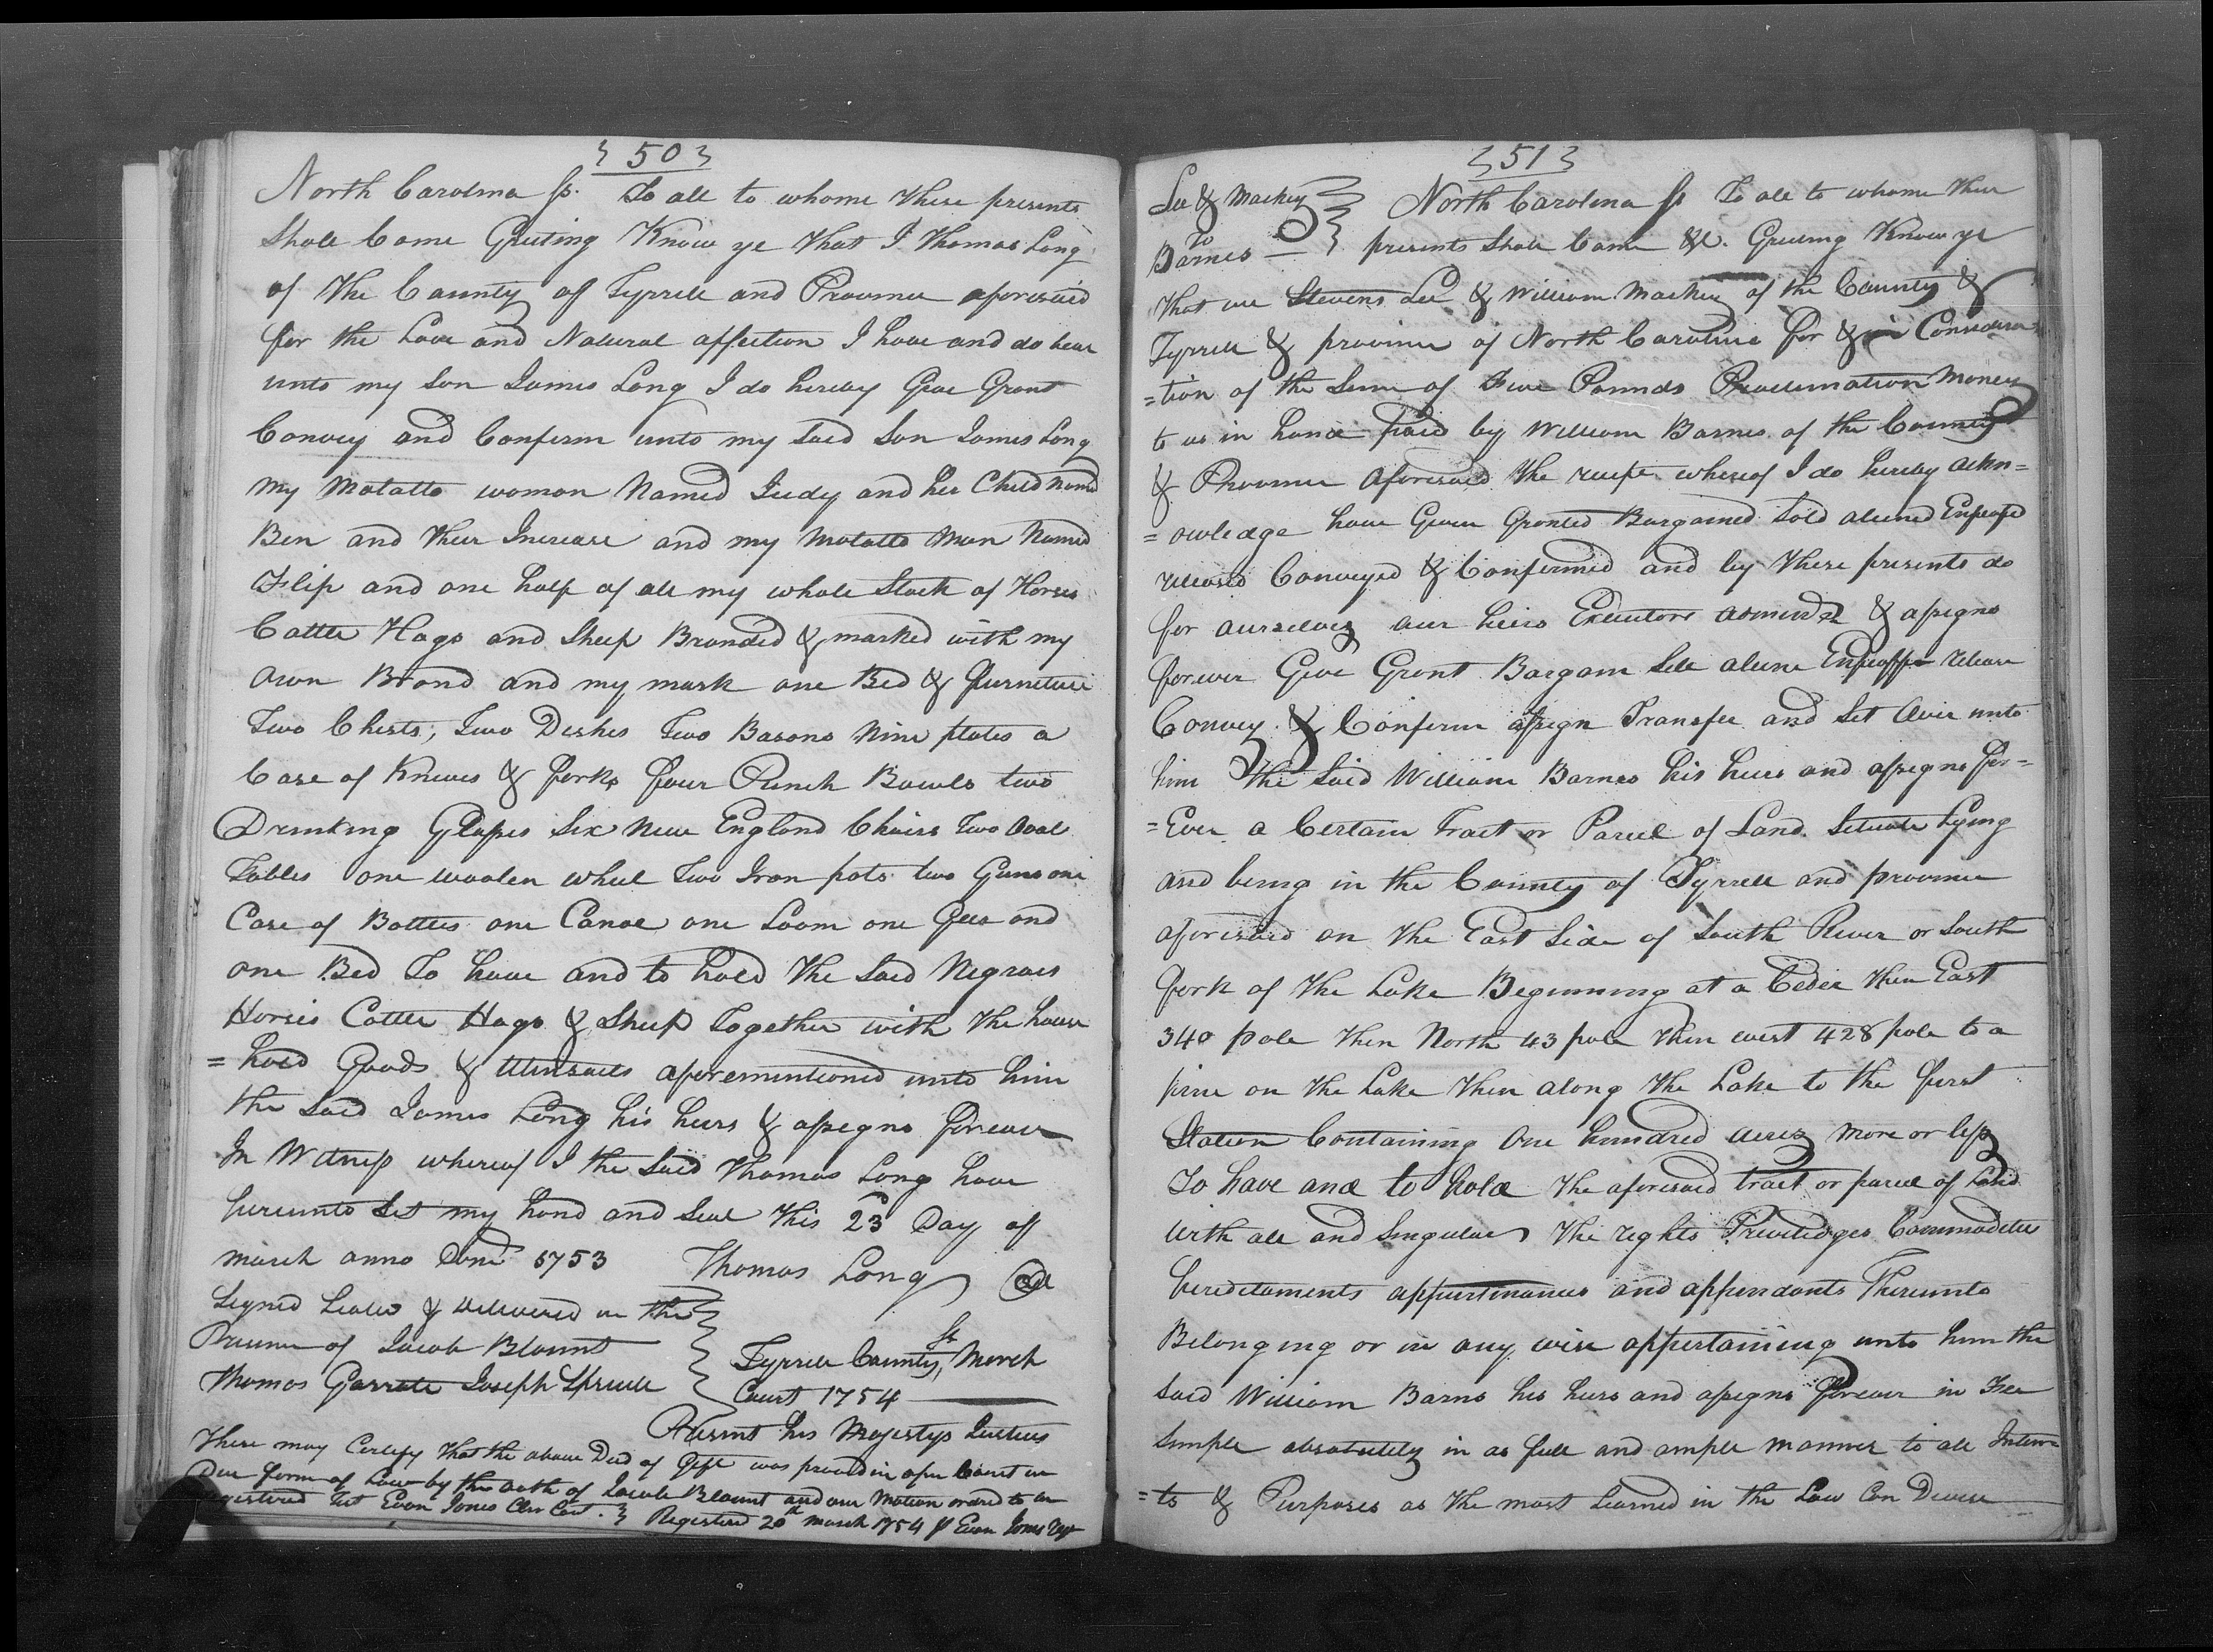 50
North Carolina Ss. To all to whome these presents
Shall Come Greeting Know ye that I Thomas Long
of the County of Tyrrell and Province aforesaid
for the Love and Natural affection I have and do bear
unto my Son James Long I do hereby Give Grant
Convey and Confirm unto my Said Son James Long
my Molatto woman Named Judy and her Child named
Ben and their Increase and my Molatto Man Named
Flip and one half of all my whole Stock of Horses
Cattle Hogs and Sheep Branded & marked with my
own Brand and my mark one Bed & furneture
Two Chests, Two Dishes Two Basons Nine plates a
Case of Knives & forks four Punch Bowls two
Drinking Glasses Six New England Chairs Two Oval
Tables one woolen wheel Two Iron pots two Guns one
Case of Bottles one Canoe one Loom one Geer and
one Bed To have and to hold the Said Negroes
Horses Cattle Hogs & Sheep Together with the house
= hold Goods & Utinsails aforementioned unto him
the Said James Long his heirs & assigns forever
In Witness whereof I the Said Thomas Long have
hereunto Set my hand and Seal this 23d Day of
march anno Domi 1753 Thomas Long Seal
Signed Sealed & delivered in the
Presence of Jacob Blount
Thomas Garrett Joseph Spruell
Tyrrell County, Ss March
Court 1754
Present his Majestys Justices
These may Certefy that the above Deed of Gift was proved in open Court in
Due form of Law by the oath of Jacob Blount and on Motion ordrd to be
Registered Test Evan Jones Clir Cort. Registered 20th March 1754 p Evan Jones Regr
51
Lee & Mackey
to
Barnes
North Carolina Ss To all to whome these
presents Shall Come &c. Greeting Know ye
that we Stevens Lee & William Mackey of the County &
Tyrrell & province of North Carolina for & in Considera
=tion of the Sum of Five Pounds Proclemation Money
to us in hand paid by William Barnes of the County
& Province aforesaid the receipt whereof I do hereby ackn=
=owledge have Given Granted Bargained Sold aliened Enfeofed
released Conveyed & Confirmed and by these presents do
for ourselves our heirs Executors adminrs & assigns
forever Give Grant Bargain Sell aliene Enfeoffe release
Convey & Confirm assign Transfer and Set Over unto
him the Said William Barnes his heirs and assigns for=
=Ever a Certain Tract or Parcel of Land Situate Lying
and being in the County of Tyrrell and province
aforesaid on the East Side of South River or South
fork of the Lake Beginning at a Ceder then East
340 pole then North 43 pole then west 428 pole to a
pine on the Lake then along the Lake to the first
Station Containing One hundred acres more or less
To have and to hold the aforesaid tract or parcel of Land
with all and Singular the rights Priviledges Commodeties
hereditaments appurtinances and appendants Thereunto
Belonging or in any wise appertaining unto him the
Said William Barns his heirs and assigns forever in Fee
Simple absolutely in as full and ample manner to all Inten=
=ts & Purposes as the most Learned in the Law Can Devise